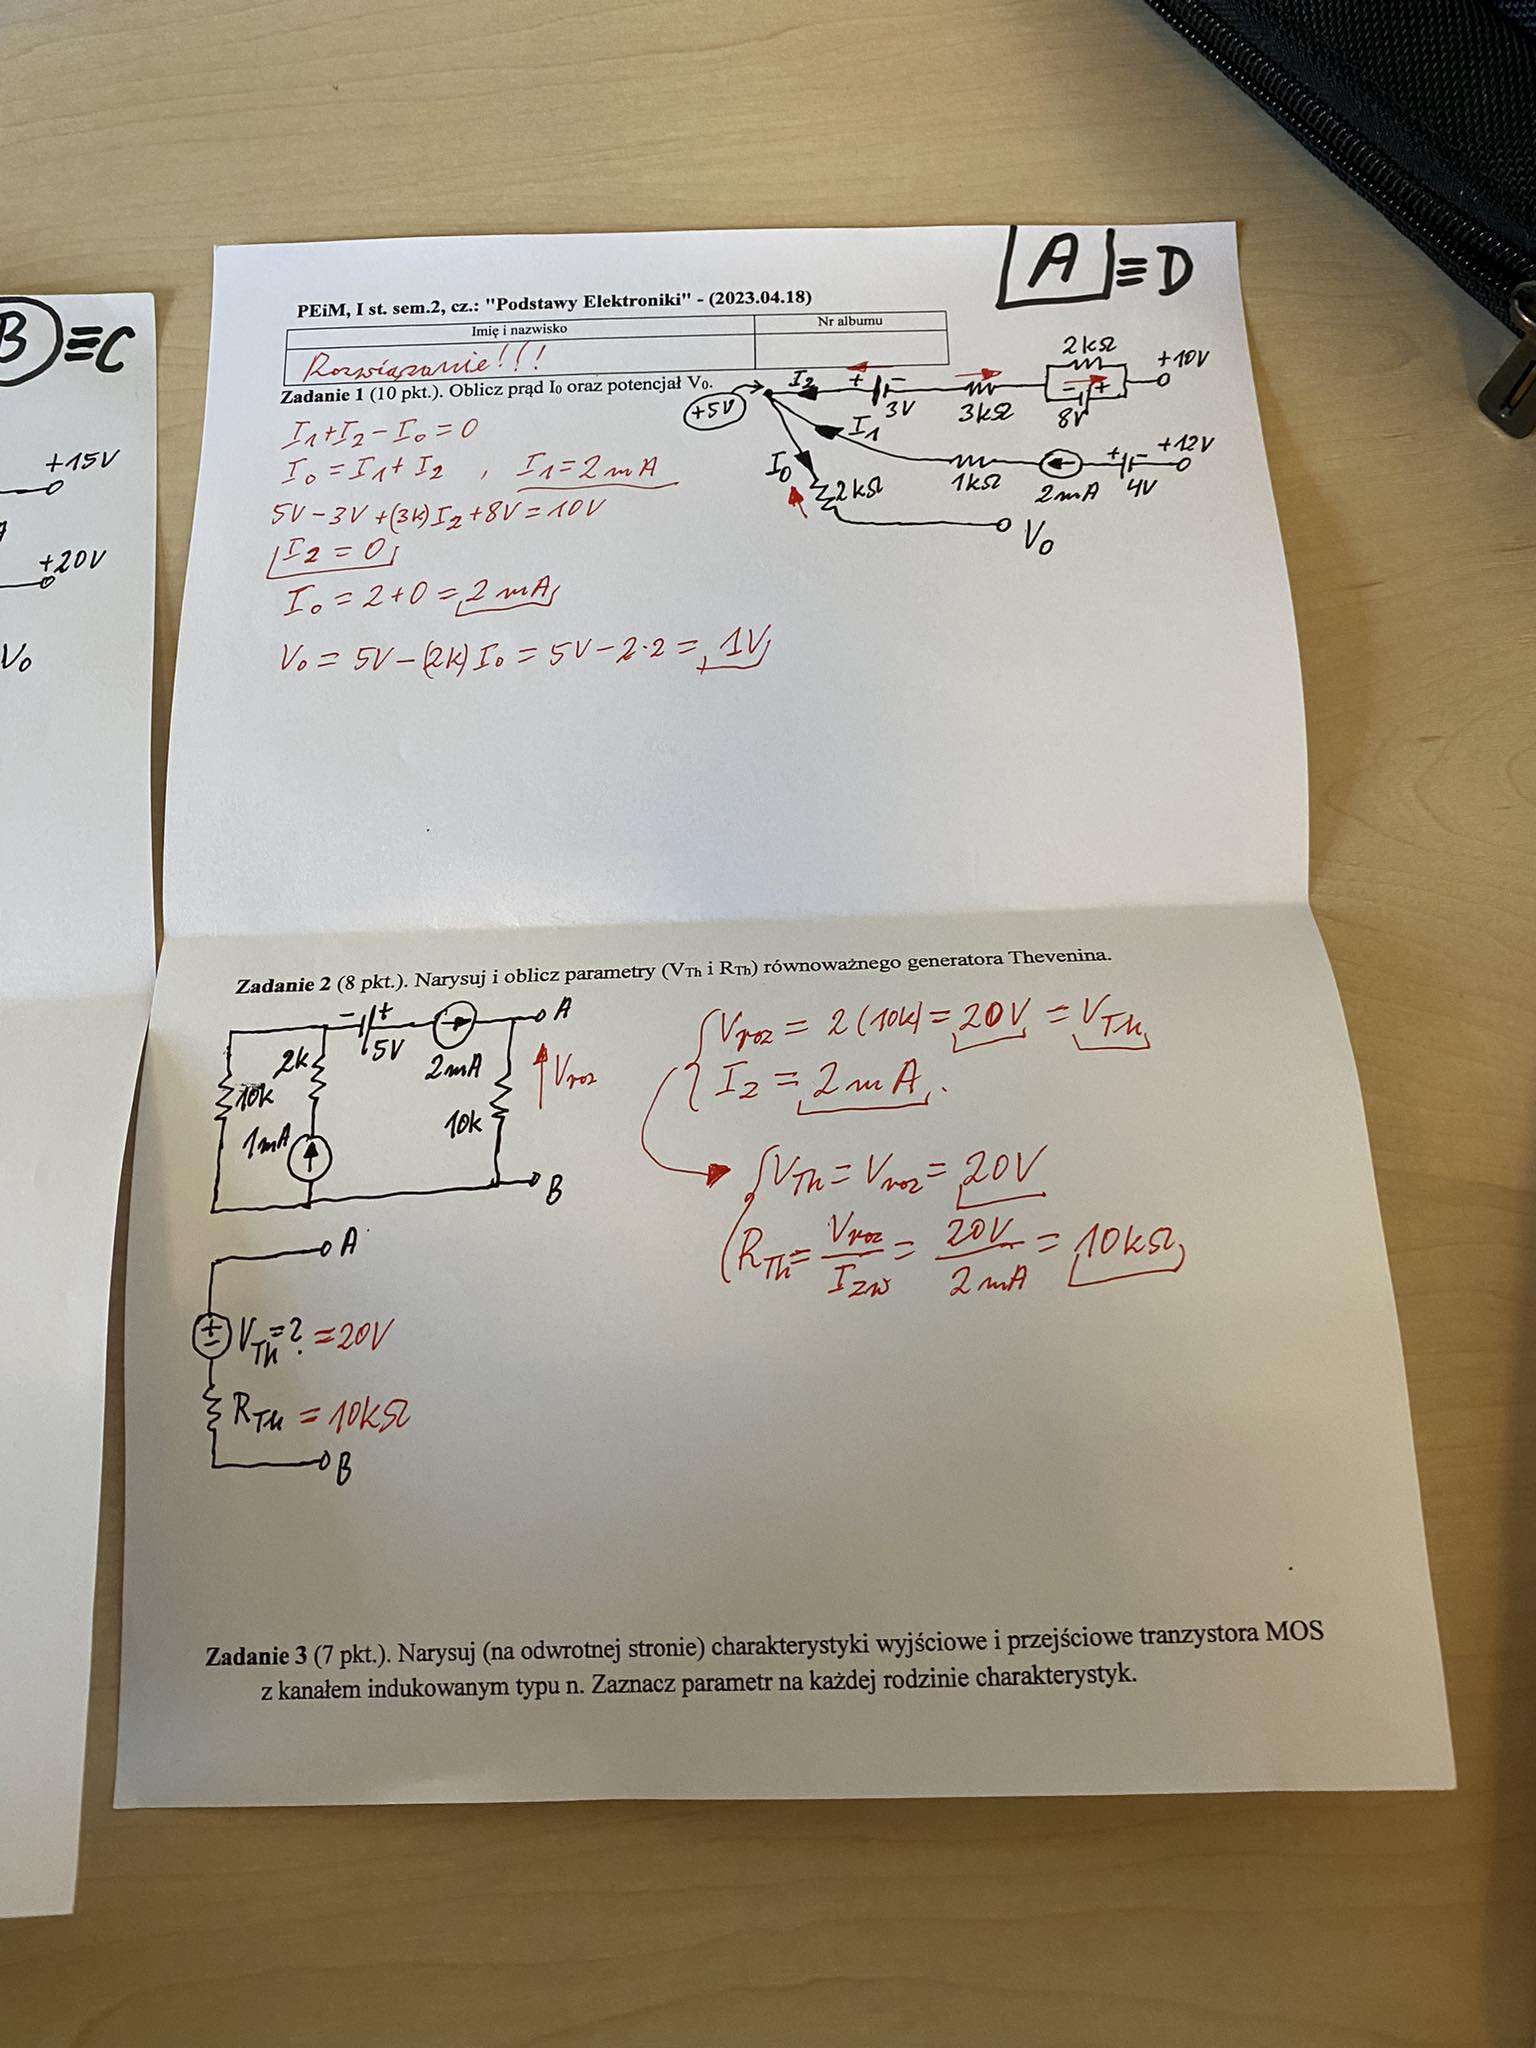 B ≡C
+15V
+20V
V₀
A ≡ D
PEiM, I st. sem.2, cz.: "Podstawy Elektroniki" - (2023.04.18)
Imię i nazwisko
Nr albumu
Rozwiązanie!!!
Zadanie 1 (10 pkt.). Oblicz prąd I₀ oraz potencjał V₀.
+5V
I₂
+ −
3V
3kΩ
2kΩ
− +
8V
+10V
I₁
1kΩ
2mA
+ −
4V
+12V
I₀
2kΩ
V₀
I₁+I₂−I₀=0
I₀=I₁+I₂ , I₁=2mA
5V−3V+(3k)I₂+8V=10V
I₂=0
I₀=2+0=2mA
V₀=5V−(2k)I₀=5V−2·2=1V
Zadanie 2 (8 pkt.). Narysuj i oblicz parametry (VTh i RTh) równoważnego generatora Thevenina.
− +
5V
2mA
A
2k
10k
1mA
10k
Vroz
B
Vroz = 2(10k) = 20V = VTh
Iz = 2mA.
VTh = Vroz = 20V
RTh = Vroz/Izw = 20V/2mA = 10kΩ
A
+ −
VTh=? =20V
RTh =10kΩ
B
Zadanie 3 (7 pkt.). Narysuj (na odwrotnej stronie) charakterystyki wyjściowe i przejściowe tranzystora MOS
z kanałem indukowanym typu n. Zaznacz parametr na każdej rodzinie charakterystyk.